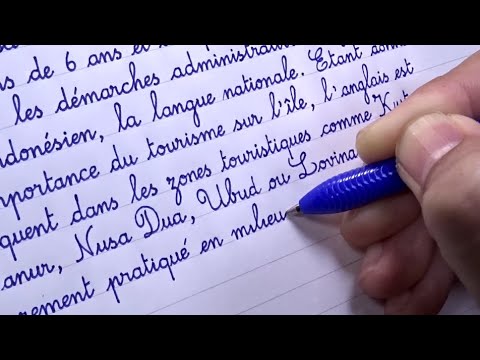 s de 6 ans et
les démarches administrati
ndonésien, la langue nationale. Etant donn
mportance du tourisme sur l'île, l'anglais est
quent dans les zones touristiques comme Kut
anur, Nusa Dua, Ubud ou Lovina
rement pratiqué en milieu